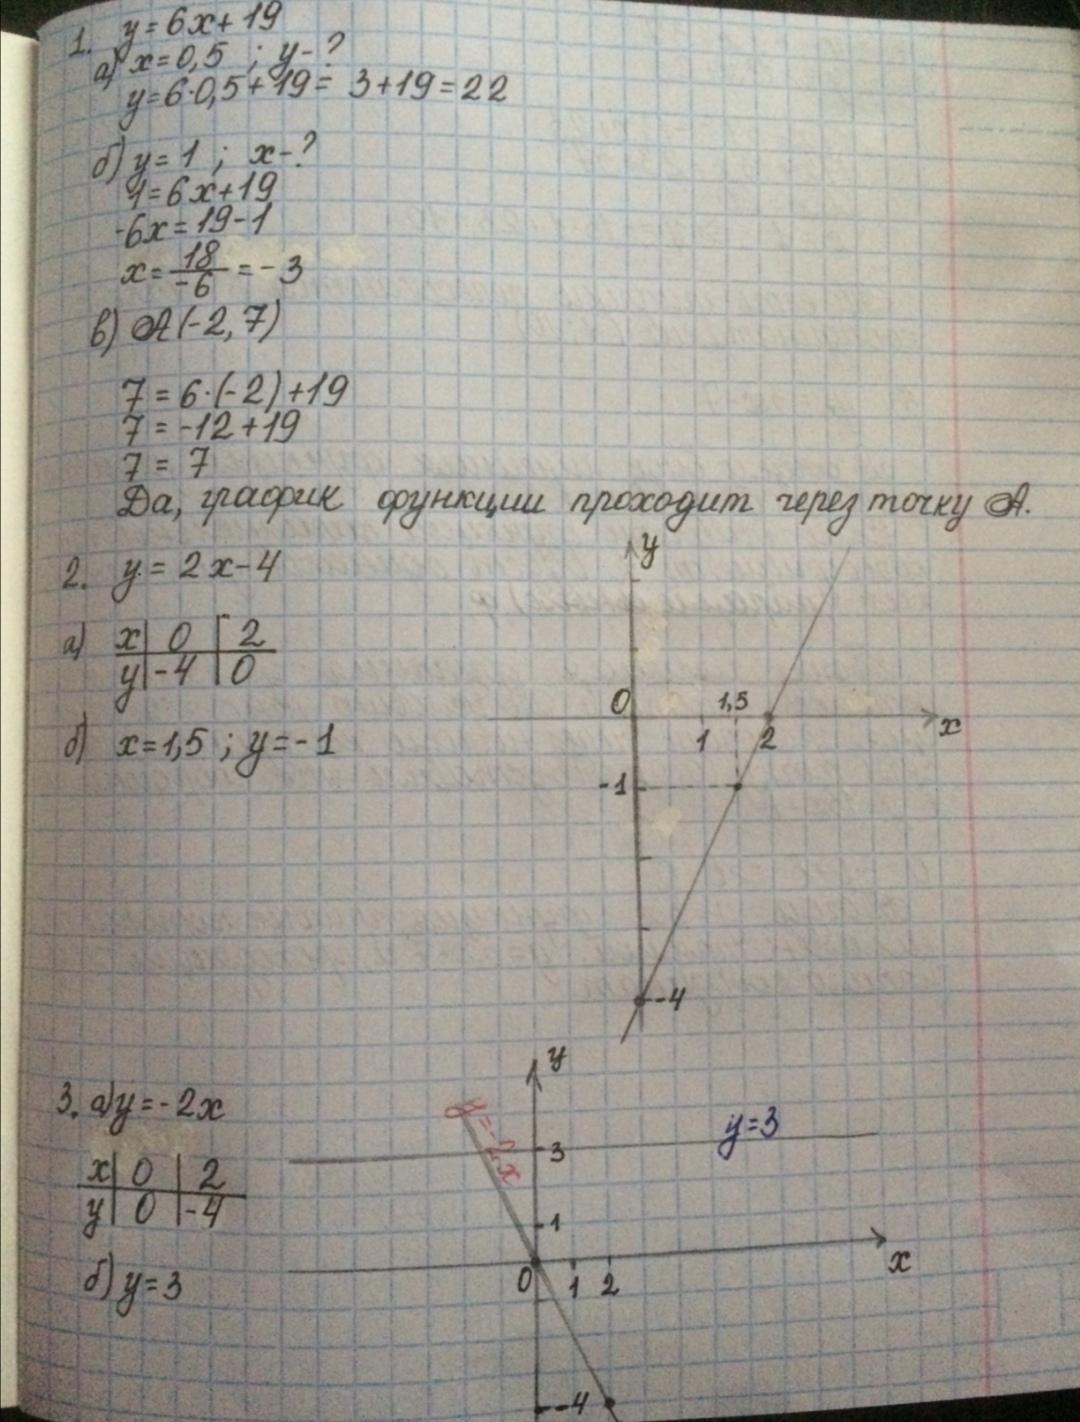 1. y = 6x + 19
а) x = 0,5 ; y - ?
y = 6·0,5 + 19 = 3 + 19 = 22
б) y = 1 ; x - ?
1 = 6x + 19
-6x = 19 - 1
x = 18/-6 = -3
в) A (-2, 7)
7 = 6·(-2) + 19
7 = -12 + 19
7 = 7
Да, график функции проходит через точку A.
2. y = 2x - 4
а) x | 0 | 2
y | -4 | 0
б) x = 1,5 ; y = -1
y
0 1,5 x
1 2
-1
-4
3. а) y = -2x
x | 0 | 2
y | 0 | -4
б) y = 3
y
y = -2x
y = 3
3
1
x
0 1 2
-4